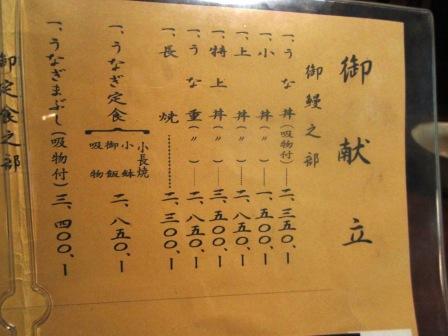 御献立
御鰻之部
一、うな丼(吸物付)二、三五〇、ー
一、小丼(〃)一、五〇〇、ー
一、上丼(〃)二、八五〇、ー
一、特上丼(〃)三、五〇〇、ー
一、うな重(〃)二、八五〇、ー
一、長焼二、三〇〇、ー
一、うなぎ定食(小長焼 小鉢 御飯 吸物 二、八五〇、ー
一、うなぎまぶし(吸物付)三、四〇〇、ー
御定食之部